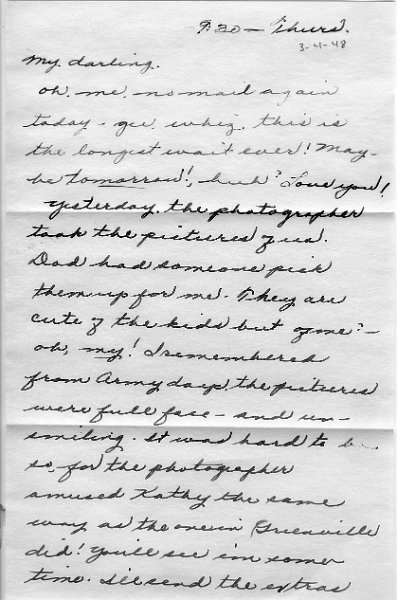 9:30 — Thurs.
3-4-48
My darling.
Oh, me, no mail again
today - gee, whiz, this is
the longest wait ever! May-
be tomorrow!, huh? Love you!
Yesterday, the photographer
took the pictures of us.
Dad had someone pick
them up for me. They are
cute of the kids but of me? -
oh, my! I remembered
from Army days, the pictures
were full face - and un-
smiling. It was hard to be
so, for the photographer
amused Kathy the same
way as the one in Greenville
did! You'll see 'em some
time. I'll send the extras